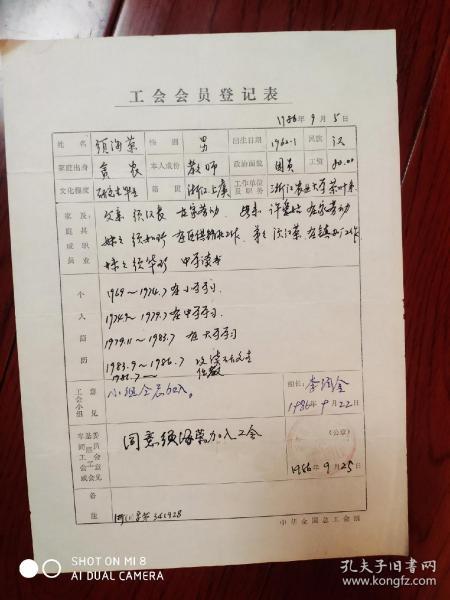 工会会员登记表
1986年9月5日
姓名 须海荣 性别 男 出生日期 1962.1 民族 汉
家庭出身 贫农 本人成份 教师 政治面貌 团员 工资 80.00
文化程度 研究生毕业 籍贯 浙江上虞 工作单位及职务 浙江农业大学茶叶系
家庭成员及其职业
父亲 须汉良 在家劳动 母亲 在家劳动
在区供销社工作 弟弟 须江荣 在镇 工作
妹妹 须华 中学读书
个人简历
1969~1974.7 在小学学习
1974.9~1979.7 在中学学习
1979.11~1983.7 在大学学习
1983.9~1986.7 攻读研究生
1986.7—— 任教
工会小组意见
小组全意加入
组长:
1986年9月22日
车间工会或基层工会委员会意见
同意须海荣加入工会
(公章)
1986年9月25日
备注
341928
中华全国总工会制
SHOT ON MI 8
AI DUAL CAMERA
孔夫子旧书网
www.kongfz.com